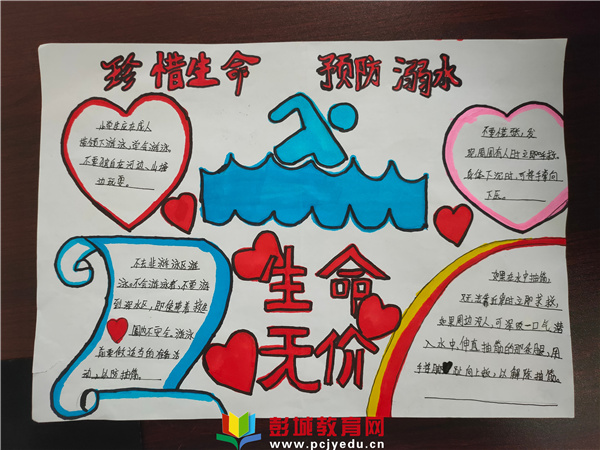 珍惜生命 预防溺水
小学生应在成人
带领下游泳,学会游泳
不要独自在河边、山塘
边玩耍。
不要慌张,发
现周围有人时立即呼救
身体下沉时,可将手掌向
下压。
生命
无价
不去非游泳区游
泳,不会游泳者,不要游
到深水区,即使带着救生
圈也不安全。游泳
前要做适当的准备活
动,以防抽筋。
如果在水中抽筋,
对着岸边时立即求救,
如果周边没人,可深吸一口气潜
入水中,伸直抽筋的那条腿,用
手将脚趾向上扳,以解除抽筋。
彭城教育网
www.pcjyedu.cn